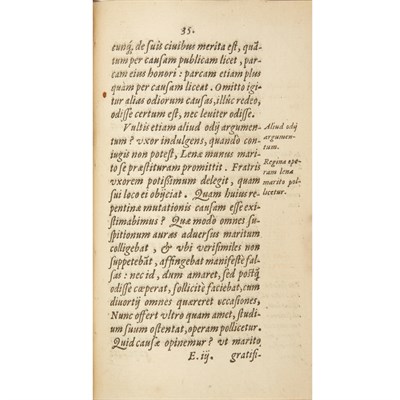 35.
eunq́; de suis ciuibus merita est, quā
tum per causam publicam licet, par
cam eius honori : parcam etiam plus
quàm per causam liceat. Omitto igi
tur alias odiorum causas, illúc redeo,
odisse certum est, nec leuiter odisse.
Vultis etiam aliud odij argumen
tum? vxor indulgens, quandò con
iugis non potest, Lenæ munus mari
to se præstituram promittit. Fratris
vxorem potissimum delegit, quam
sui loco ei obijciat. Quam huius re
pentinæ mutationis causam esse exi
stimabimus? Quæ modò omnes su
spitionum auras aduersus maritum
colligebat, & vbi verisimiles non
suppetebāt, affingebat manifestè fal
sas : nec id, dum amaret, sed postq̃
odisse cœperat, sollicitè faciebat, cum
diuortij omnes quæreret occasiones,
Nunc offert vltro quam amet, studi
um suum ostentat, operam pollicetur.
Quid causæ opinemur? vt marito
E. iij. gratifi-
Aliud odij
argumen-
tum.
Regina ope
ram lenæ
marito pol
licetur.